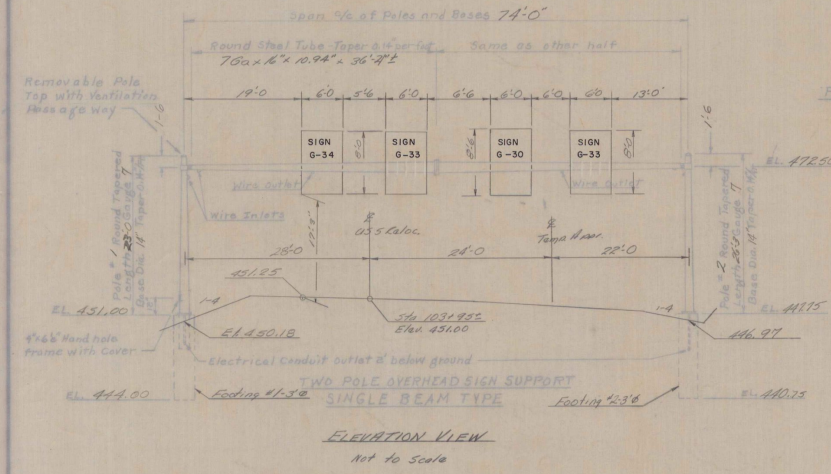 Span c/c of Poles and Bases 74'-0"
Round Steel Tube-Taper 0.14" per foot
Same as other half
7Ga x 16" x 10.94" x 36'-2½"±
Removable Pole
Top with Ventilation
Passage Way
1'-6
19'-0
6'-0
5'-6
6'-0
6'-6
6'-0
6'-0
6'-0
13'-0"
1'-6
SIGN
G-34
8'-0
SIGN
G-33
8'-6
SIGN
G-30
SIGN
G-33
8'-0
EL. 472.50
Wire Outlet
Wire Outlet
Wire Inlets
US 5 Reloc.
28'-0
24'-0
22'-0
Pole #1 Round Tapered
Length 23'-0 Gauge 7
Base Dia. 14"
Pole #2 Round Tapered
Gauge 7
Base Dia. 14"
451.25
EL. 451.00
1-4
1-4
Sta 103+95±
Elev. 451.00
El. 450.18
446.97
EL. 447.75
4"x6½" Hand hole
frame with Cover
Electrical Conduit Outlet 2' below ground
TWO POLE OVERHEAD SIGN SUPPORT
SINGLE BEAM TYPE
EL. 444.00
Footing #1-3'Ø
Footing #2-3'Ø
EL. 440.75
ELEVATION VIEW
Not to Scale